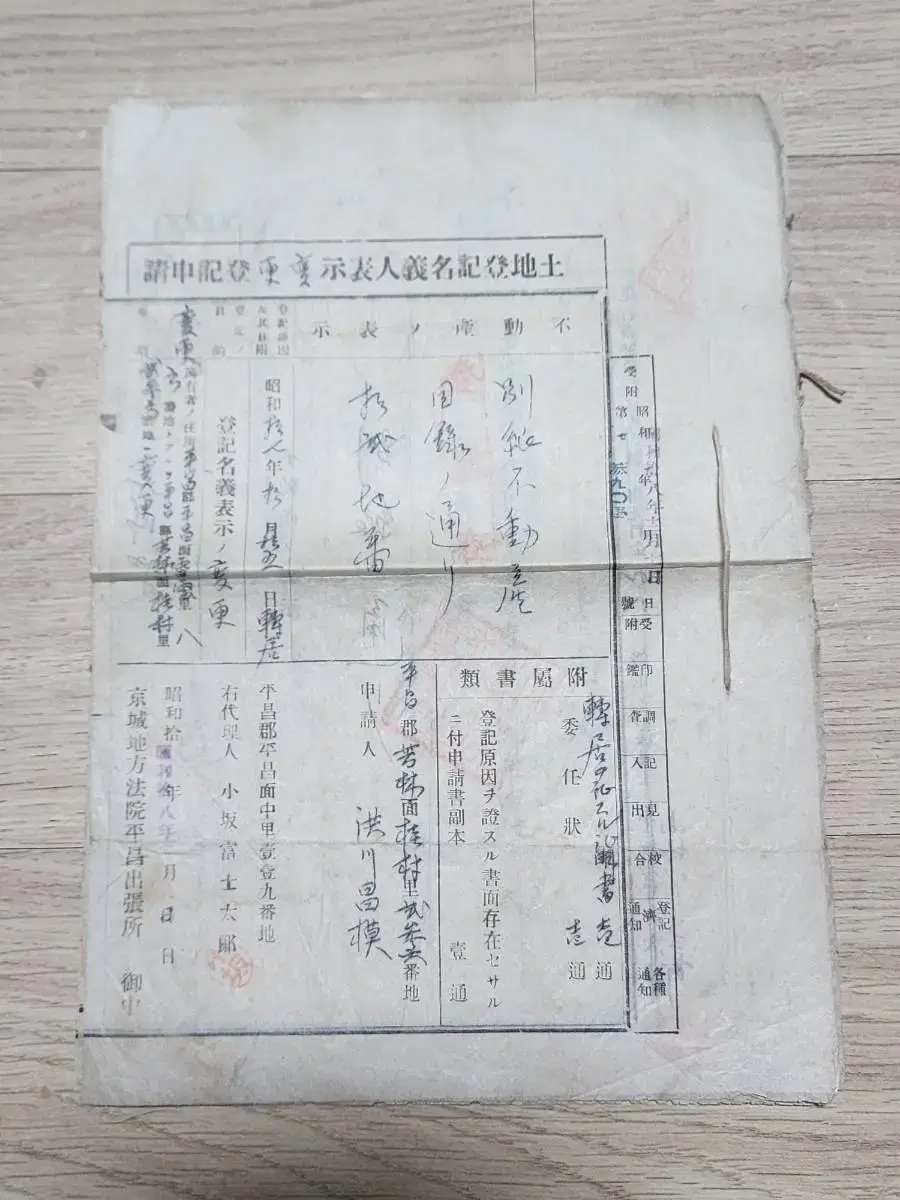 土地登記名義人表示變更登記申請
受附 昭和拾八年 月 日
第七參九〇号
受附
印鑑
調査
記入
見出
校合
登記濟通知
各種通知
不動產ノ表示
別紙不動產
目錄ノ通リ
拾貳地番
登記原因及其日附
昭和拾七年拾月 日轉居
登記ノ目的
登記名義表示ノ變更
變更
附屬書類
轉居 證 書壱通
委任狀 壱通
登記原因ヲ證スル書面存在セサル
ニ付申請書副本 壹通
平昌郡芳林面桂村里貳參六番地
申請人 洪川昌模
平昌郡平昌面中里壹壹九番地
右代理人 小坂富士太郎
昭和拾八年 月 日
京城地方法院平昌出張所 御中